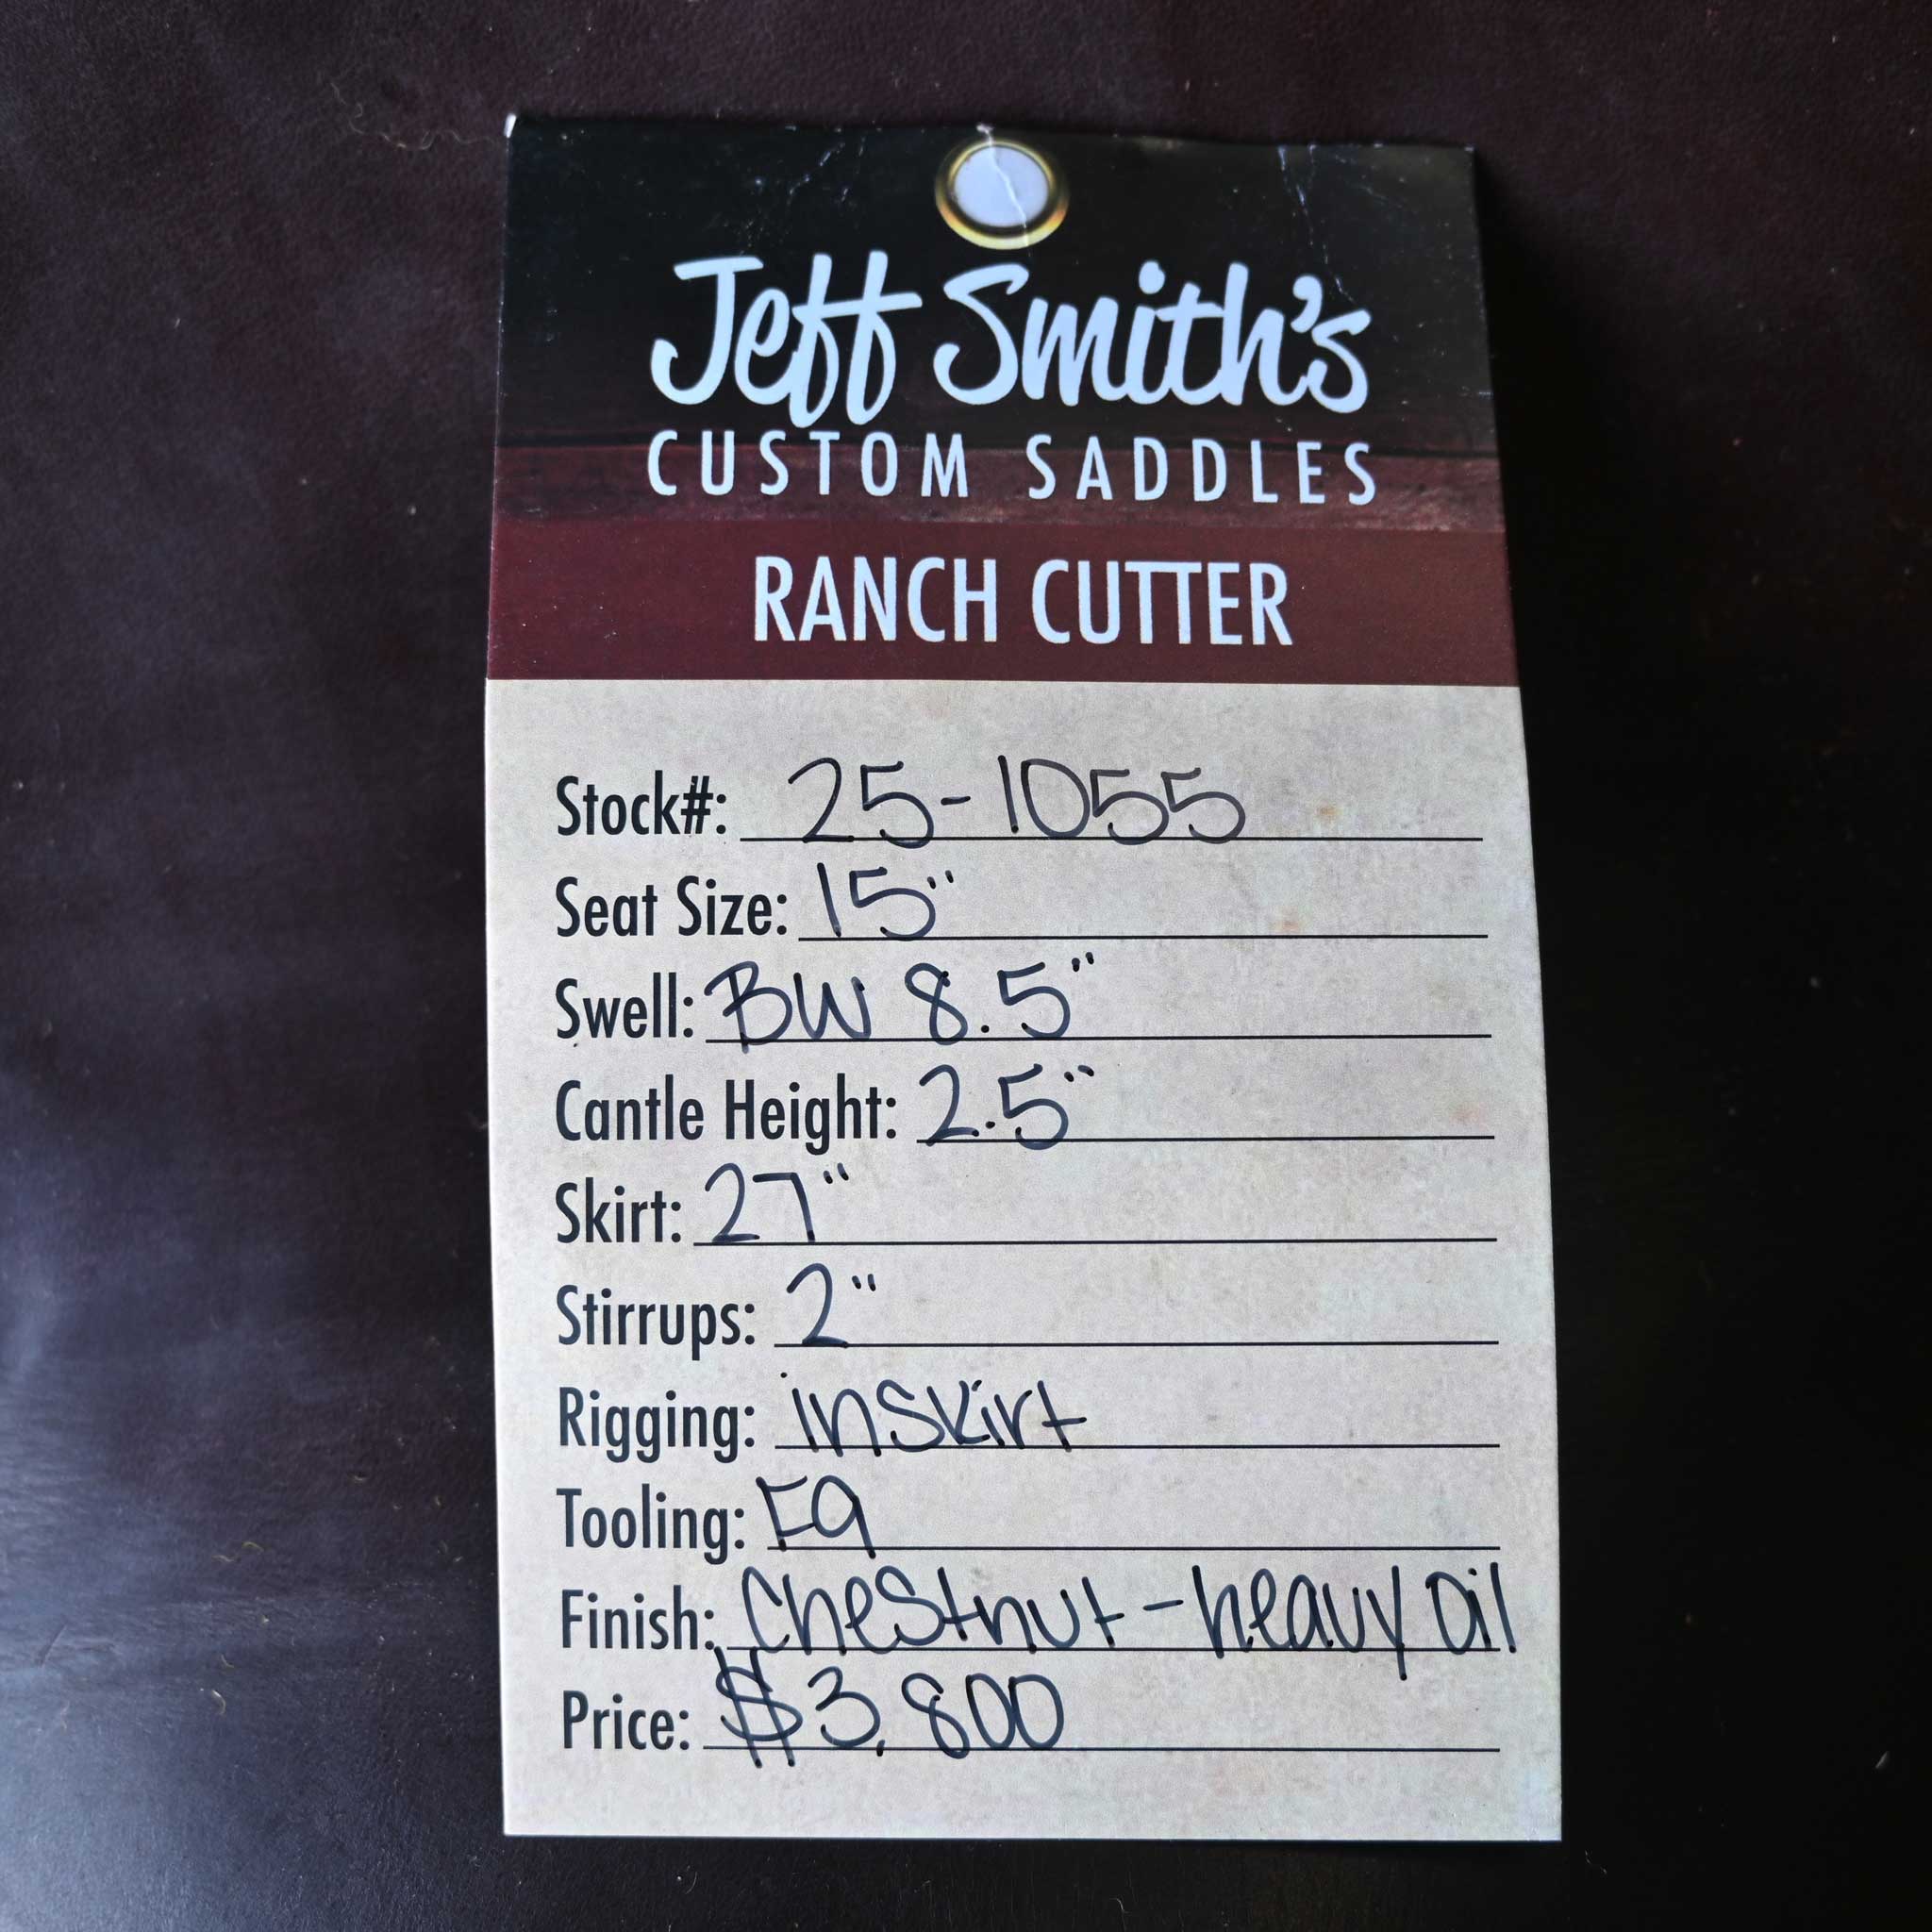 Jeff Smith's
CUSTOM SADDLES
RANCH CUTTER
Stock#: 25-1055
Seat Size: 15"
Swell: BW 8.5"
Cantle Height: 2.5"
Skirt: 27"
Stirrups: 2"
Rigging: inskirt
Tooling:
Finish: Chestnut - heavy oil
Price: $3,800